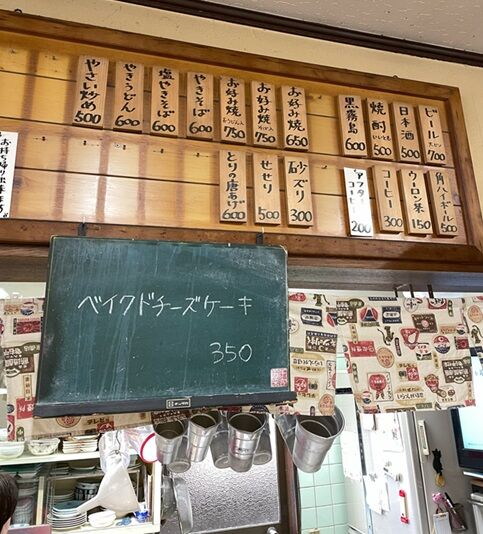 ビール 大ビン 700
日本酒 500
焼酎 500
黒霧島 600
お好み焼 650
お好み焼 750
お好み焼 750
やきそば 600
塩やきそば 600
やきうどん 600
やさい炒め 500
角ハイボール 500
ウーロン茶 150
コーヒー 300
アフターコーヒー 200
砂ズリ 300
せせり 500
とりの唐あげ 600
ベイクドチーズケーキ
350